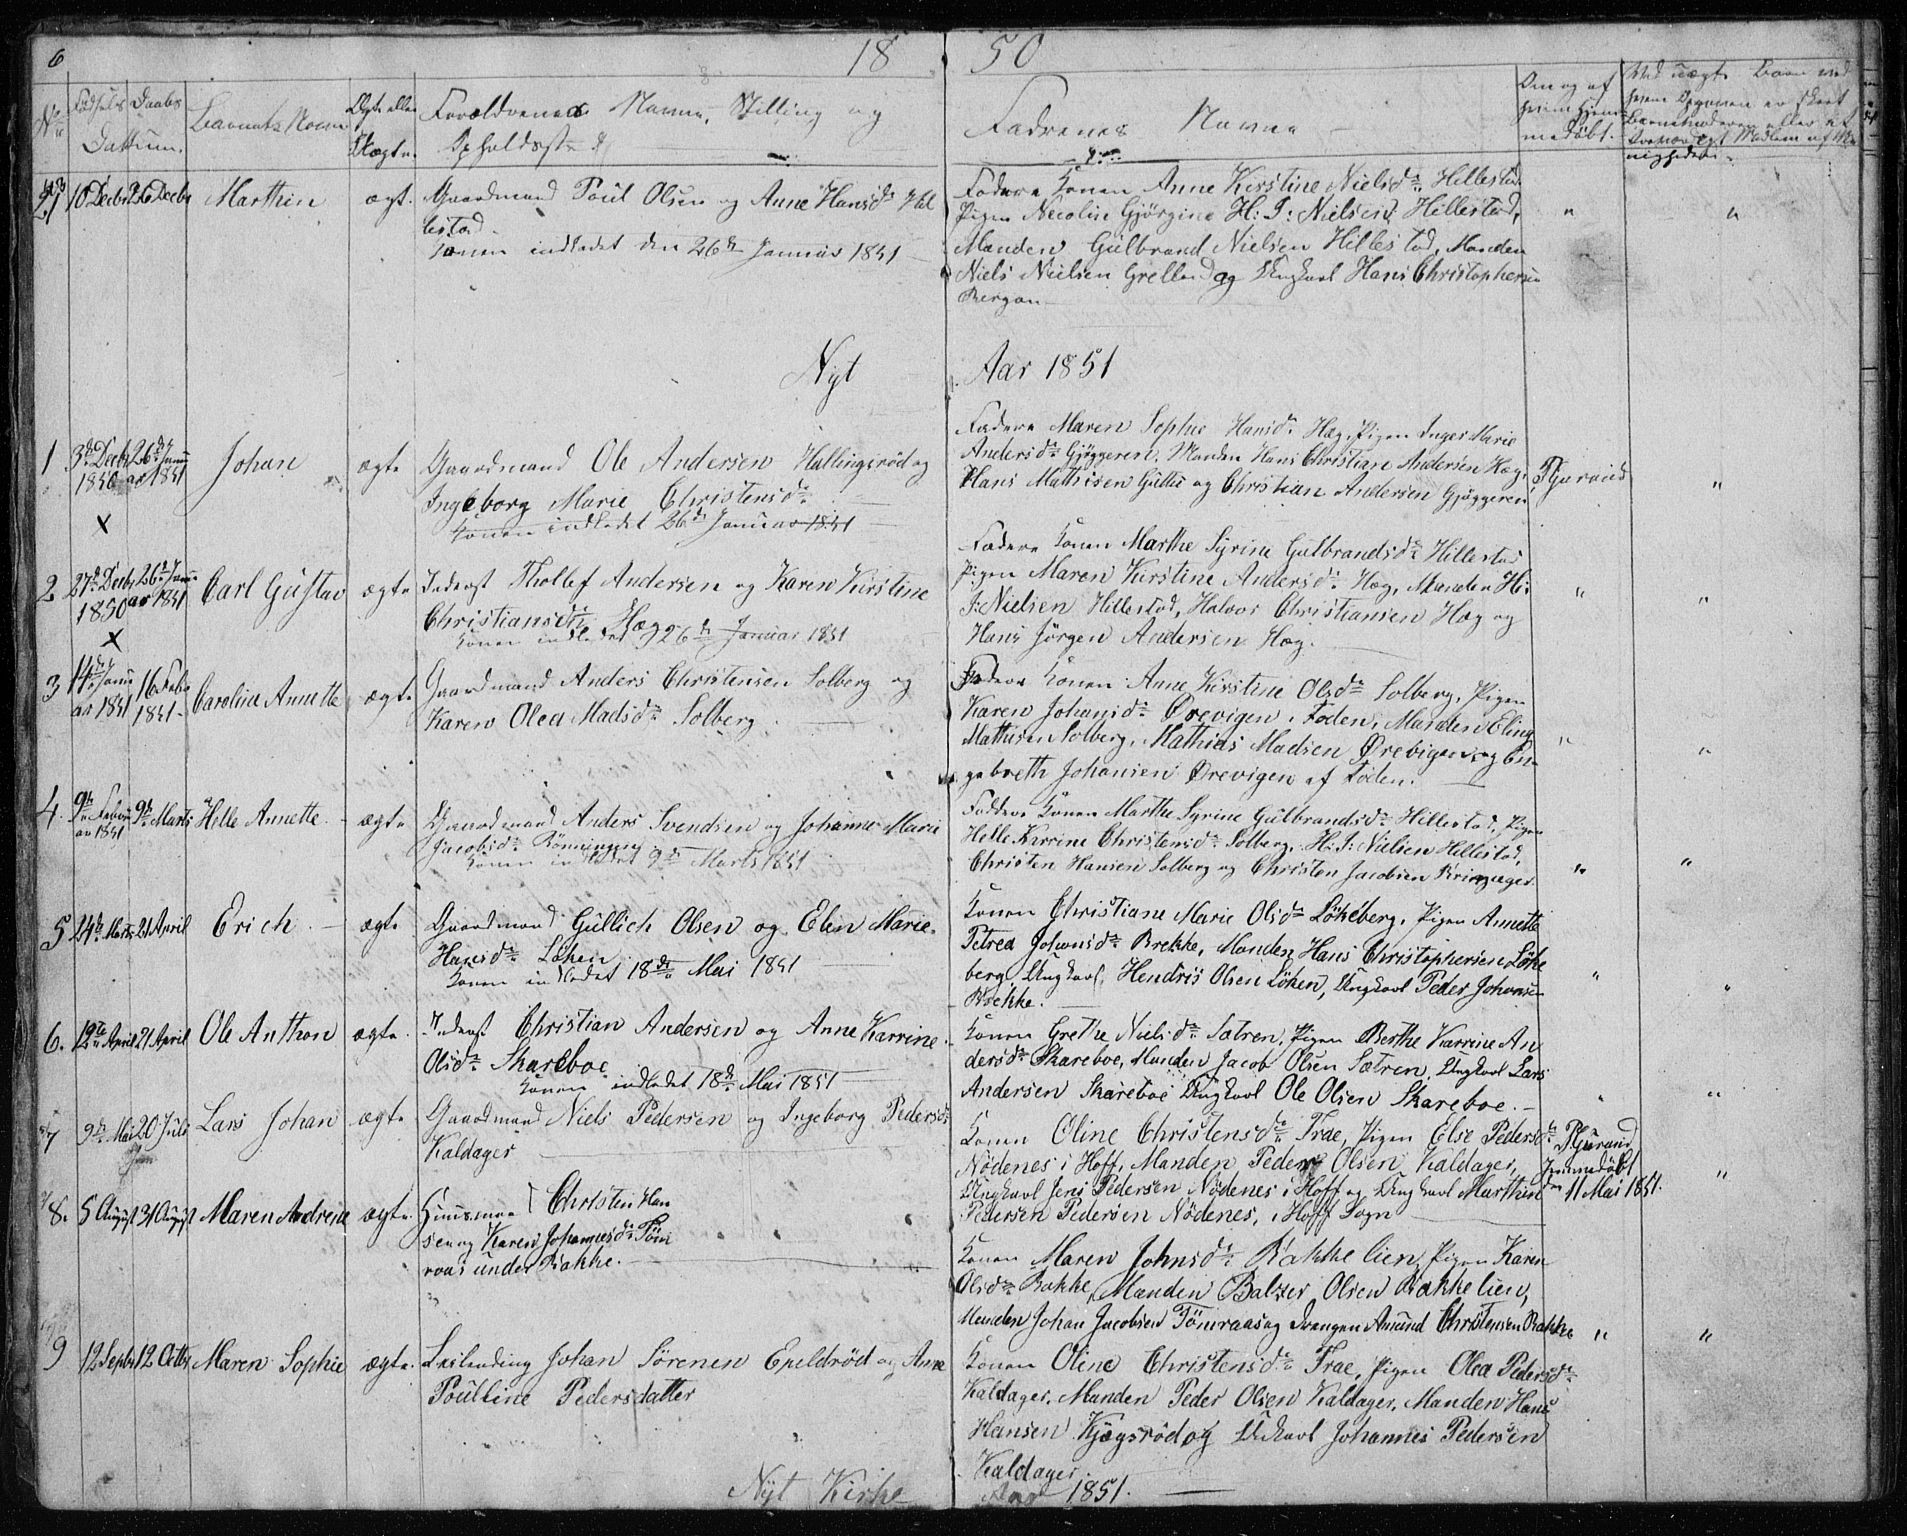 6 18 50
No Fødsels Daabs Barnets Navn Ægte eller Forældrenes Navne, Stilling og Faddrenes Navne Om og af
Dattum. Uægte. Opholdsst. hvem hjem-
medøbt.
21 10 Decbr 26 Decbr Marthin ægt. Gaardmand Poul Olsen og Anne Hansdr Hil
lestad.
Konen indledet den 26de Januar 1851
Faddere Konen Anne Kirstine Nielsdr Hillestad
Pigen Necoline Gjørgine H: J: Nielsen Hillestad,
Manden Gulbrand Nielsen Hillestad, Manden
Niels Nielsen Grelland og Ungkarl Hans Christophersen
Bergan
Nyt Aar 1851
1 3de Decbr 26de Janu Johan ægte Gaardmand Ole Andersen Hallingsrød og
1850 ar 1851 Ingeborg Marie Christensdr
X Konen indledet 26de Januar 1851
Faddere Maren Sophie Hansdr Hæg, Pigen Inger Marie
Andersdr Gjøggeren, Manden Hans Christian Andersen Hæg,
Hans Mathisen Guttu og Christian Andersen Gjøggeren
2 27de Decbr 26de Janu Carl Gustav ægte Inderst Thollef Andersen og Karen Kirstine
1850 ar 1851 Christiansdr Hæg
X Konen indledet 26de Januar 1851
Faddere Konen Marthe Syrine Gulbrandsdr Hillestad
Pigen Maren Kirstine Andersdr Hæg, Manden H:
J: Nielsen Hillestad, Halvor Christiansen Hæg og
Hans Jørgen Andersen Hæg.
3 14de Janu 16 Febr Caroline Annette ægte Gaardmand Anders Christensen Solberg og
ar 1851 1851 Karen Olea Madsdr Solberg.
Faddere Konen Anne Kirstine Olsdr Solberg, Pigen
Karen Johansdr Ørevigen i Foden, Manden Eling
Mathisen Solberg, Mathias Madsen Ørevigen og En-
gebreth Johansen Ørevigen af Foden.
4. 9de Febru 9de Marts Helle Annette. ægte Gaardmand Anders Svendsen og Johanne Marie
ar 1851 Jacobsdr Rønningen
Konen indledet 9de Marts 1851
Faddere Konen Marthe Syrine Gulbrandsdr Hillestad, Pigen
Helle Karrine Christensdr Solberg, H: J: Nielsen Hillestad,
Christen Hansen Solberg og Christen Jacobsen Bringager
5 24de Marts 21 April Erich. ægte Gaardmand Gullich Olsen og Elen Marie
Hansdr Løken
Konen indledet 18de Mai 1851
Konen Christiane Marie Olsdr Løkeberg, Pigen Annette
Petrea Johansdr Brekke, Manden Hans Christophersen Løke
berg, Ungkarl Hendris Olsen Løken, Ungkarl Peder Johansen
Brekke.
6. 12te April 21 April Ole Anthon ægte. Inderst Christian Andersen og Anne Karrine
Olsdr Skareboe
Konen indledet 18de Mai 1851
Konen Grethe Nielsdr Sætren, Pigen Berthe Karrine An
dersdr Skareboe, Manden Jacob Olsen Sætren, Ungkarl Lars
Andersen Skareboe Ungkarl Ole Olsen Skareboe.
7 9de Mai 20 Juli Lars Johan ægte Gaardmand Niels Pedersen og Ingeborg Pedersdr
Kaldager
Konen Oline Christensdr Trae, Pigen Else Pedersdr
Nødenes i Hoff, Manden Peder Olsen Kaldager,
Ungkarl Jens Pedersen Nødenes i Hoff og Ungkarl Marthin
Pedersen Pedersen Nødenes, i Hoff Sogn
hjemmedøbt
den 11 Mai 1851.
8. 5 August 31 August Maren Andrine ægte. Huusmand Christen Han
sen og Karen Johannesdr Tøm
raas under Bakke.
Konen Maren Johnsdr Bakkelien, Pigen Karen
Olsdr Bakke, Manden Balzer Olsen Bakkelien,
Manden Johan Jacobsen Tømraas og Drengen Amund Christensen Bakke
9 12 Septbr 12 Octbr Maren Sophie ægte. Leilending Johan Sørensen Epeldrød og Anne
Poulline Pedersdatter
Konen Oline Christensdr Trae, Pigen Olea Pedersdr
Kaldager, Manden Peder Olsen Kaldager, Manden Hans
Hansen Kjægsrød og Ungkarl Johannes Pedersen
Kaldager.
Nyt Kirke Aar 1851.